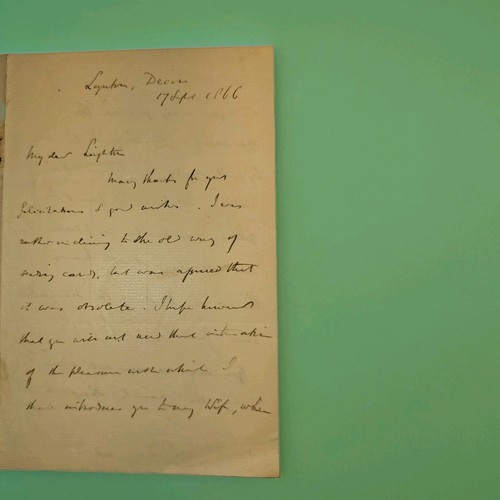 Lynton, Devon
17 Sept 1866
My dear Leighton
Many thanks for your
felicitations & good wishes. I was
rather inclining to the old way of
sending cards, but was assured that
it was obsolete. I hope however
that you will not need that intimation
of the pleasure with which I
shall introduce you to my Wife, when